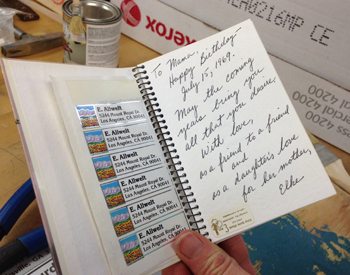 xerox
A0216MP CE
4200
4200
E. Allwelt
5244 Mount Royal Dr.
Los Angeles, CA 90041
E. Allwelt
5244 Mount Royal Dr.
Los Angeles, CA 90041
E. Allwelt
5244 Mount Royal Dr.
Los Angeles, CA 90041
E. Allwelt
5244 Mount Royal Dr.
Los Angeles, CA 90041
E. Allwelt
5244 Mount Royal Dr.
Los Angeles, CA 90041
E. Allwelt
5244 Mount Royal Dr.
Los Angeles, CA 90041
To "Mama",
Happy Birthday
July 15, 1969.
May the coming
years bring you
all that you desire.
With love,
as a friend to a friend
and
as a daughter's love
for her mother,
Elke